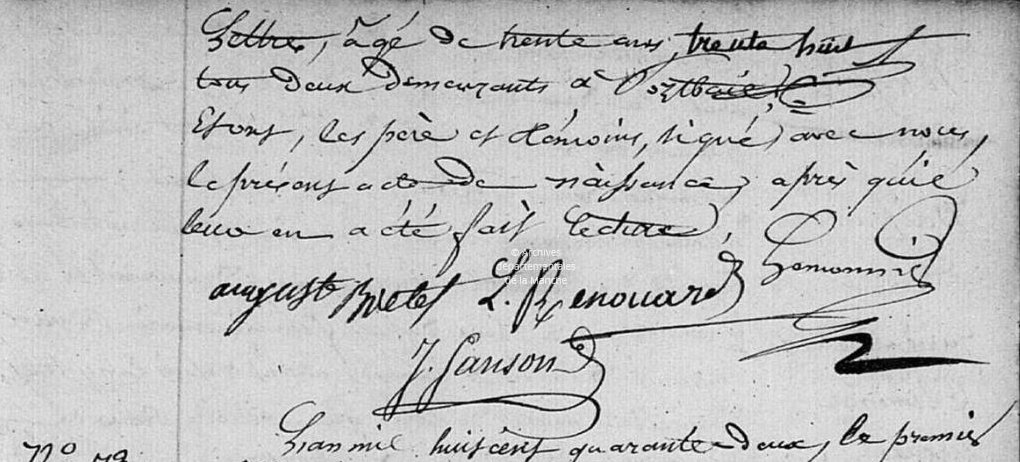 Lettres, âgé de trente ans, trente huit
tous deux demeurants à Portbail,
Et ont, les père et témoins, signé, avec nous,
le présent acte de naissance, après qu'il
leur en a été fait lecture,
© Archives
départementales
de la Manche
Lemonnier
auguste Bretel L. Renouard
J. Canson
L'an mil huit cent quarante-deux, le premier
N°